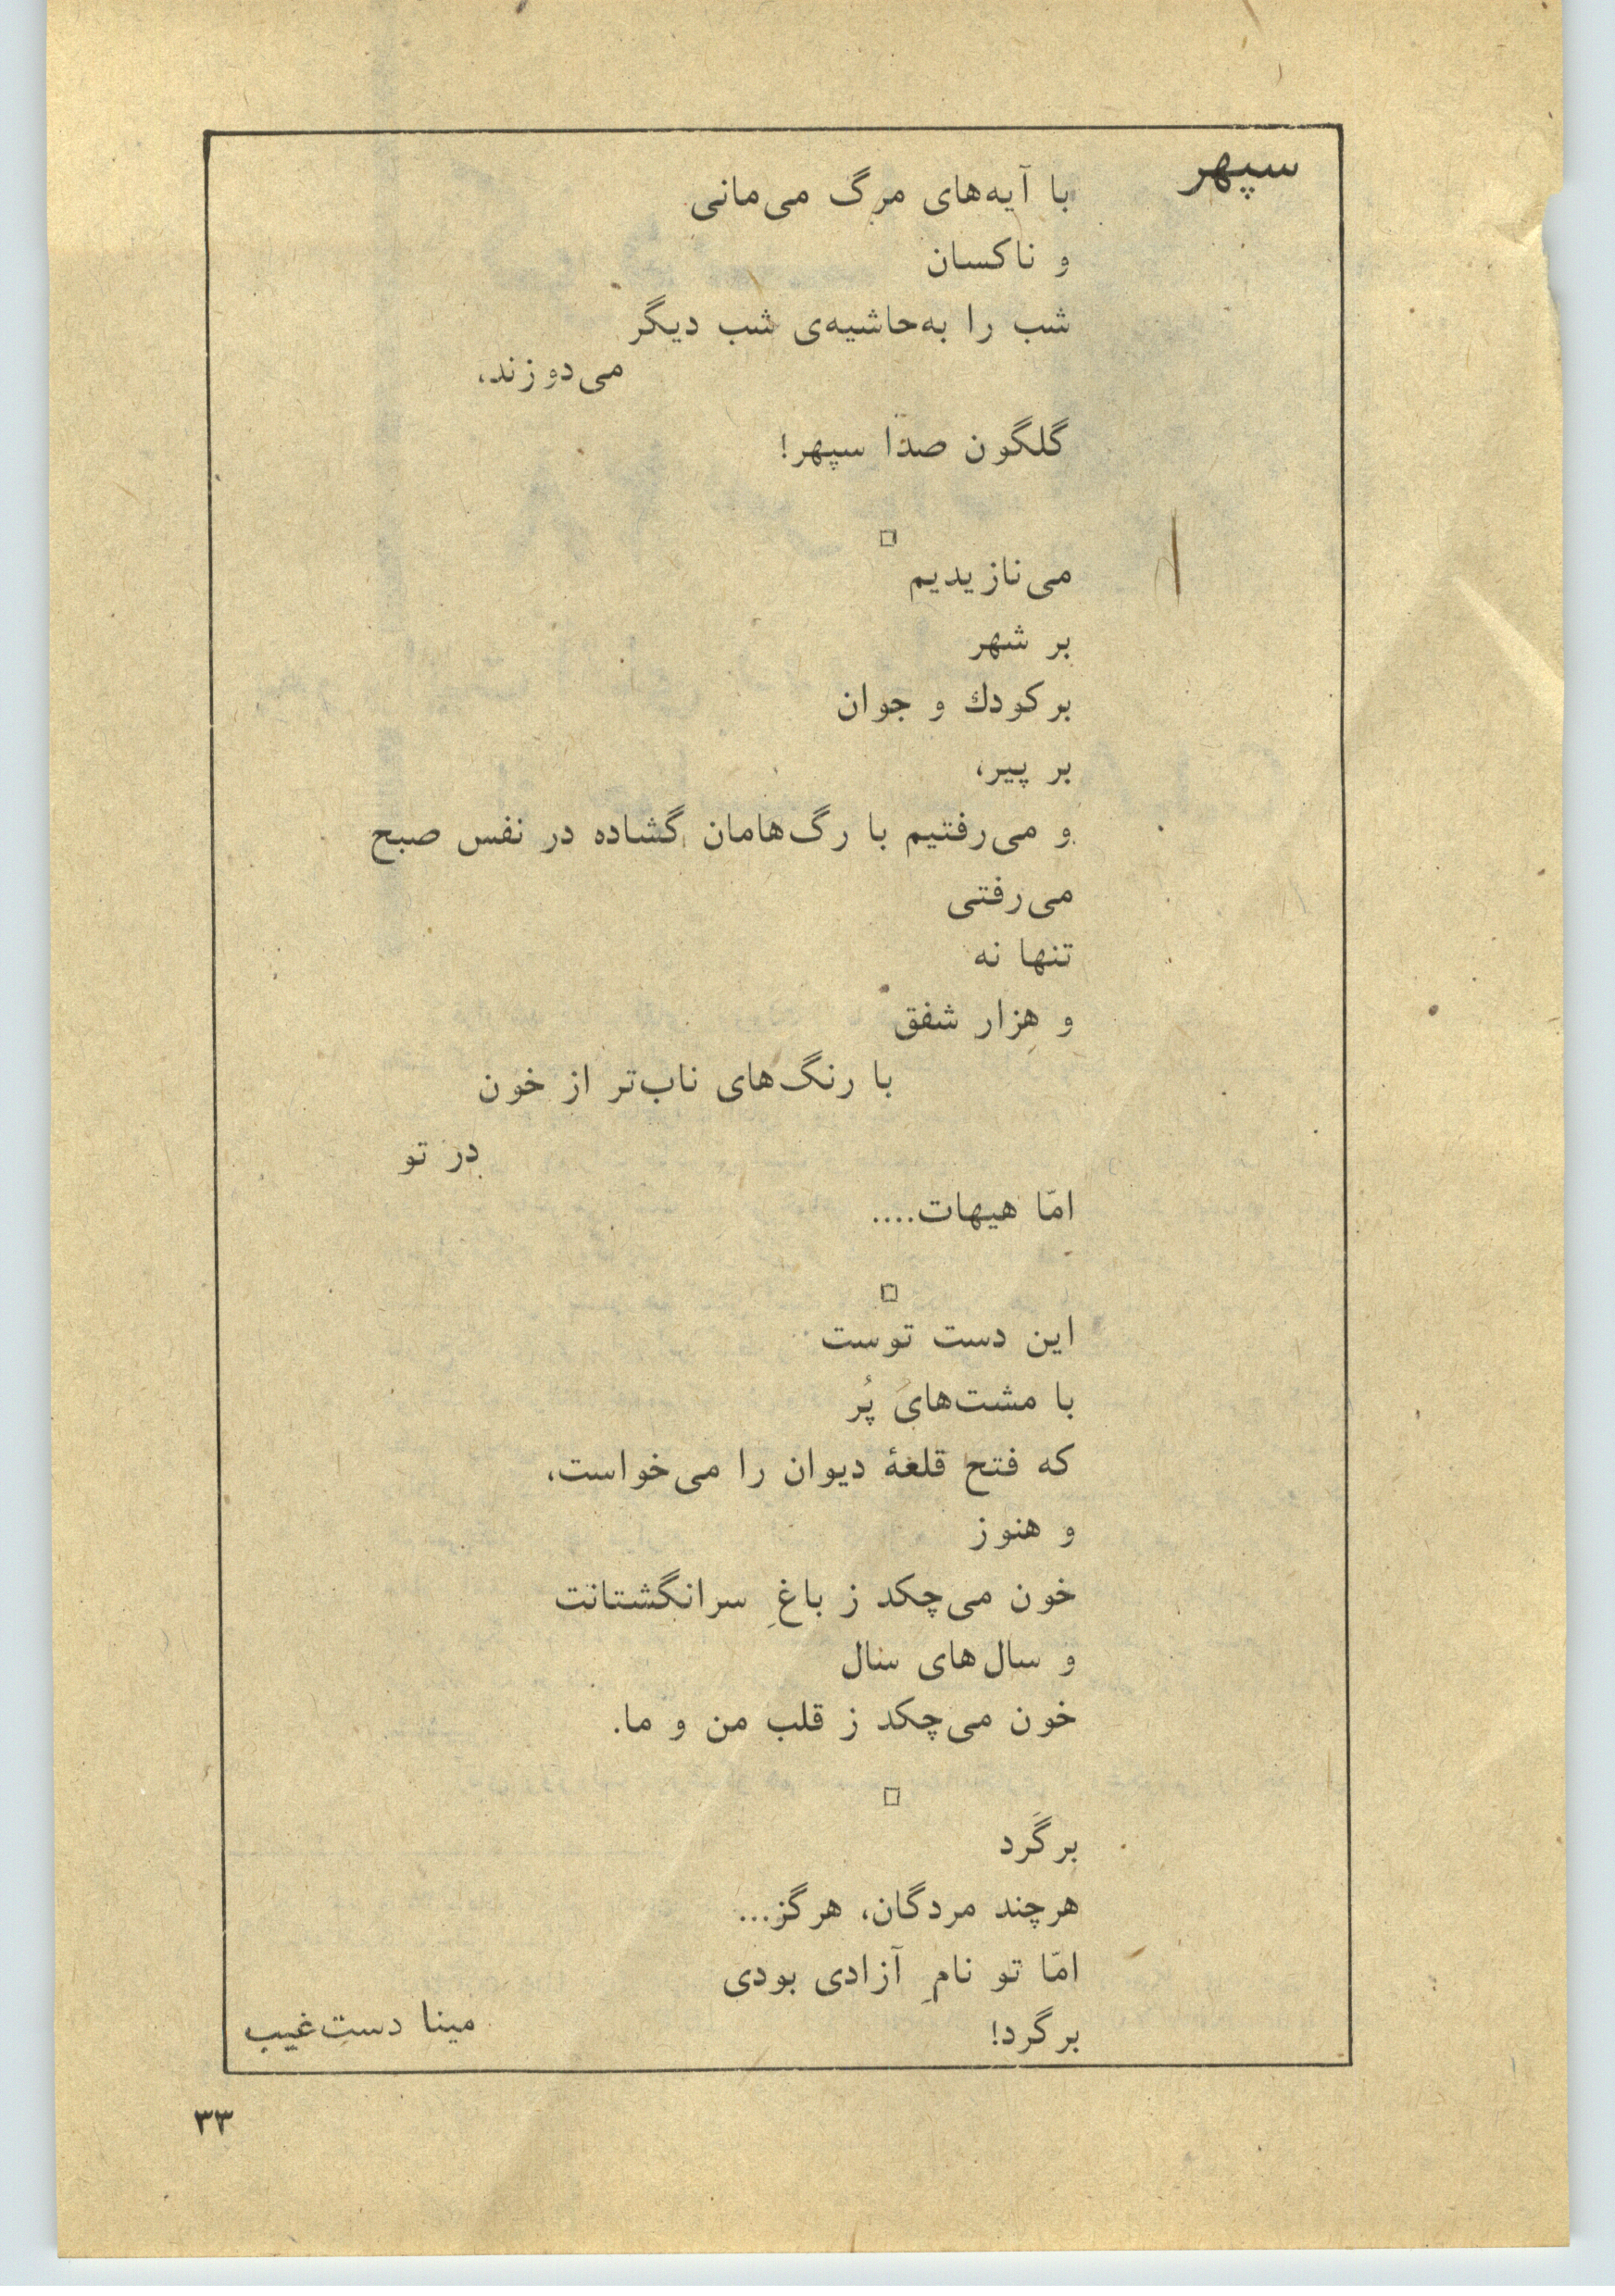 سپهر
با آیه‌های مرگ می‌مانی
و ناکسان
شب را به‌حاشیه‌ی شب دیگر
می‌دوزند،
گلگون صدا سپهر!
□
می‌نازیدیم
بر شهر
بر کودك و جوان
بر پیر،
و می‌رفتیم با رگ‌هامان گشاده در نفس صبح
می‌رفتی
تنها نه
و هزار شفق
با رنگ‌های ناب‌تر از خون
در تو
امّا هیهات....
□
این دست توست
با مشت‌های پُر
که فتح قلعهٔ دیوان را می‌خواست،
و هنوز
خون می‌چکد ز باغِ سرانگشتانت
و سال‌های سال
خون می‌چکد ز قلب من و ما.
□
برگَرد
هرچند مردگان، هرگز...
امّا تو نامِ آزادی بودی
برگرد!
مینا دستِ‌غیب
۳۳